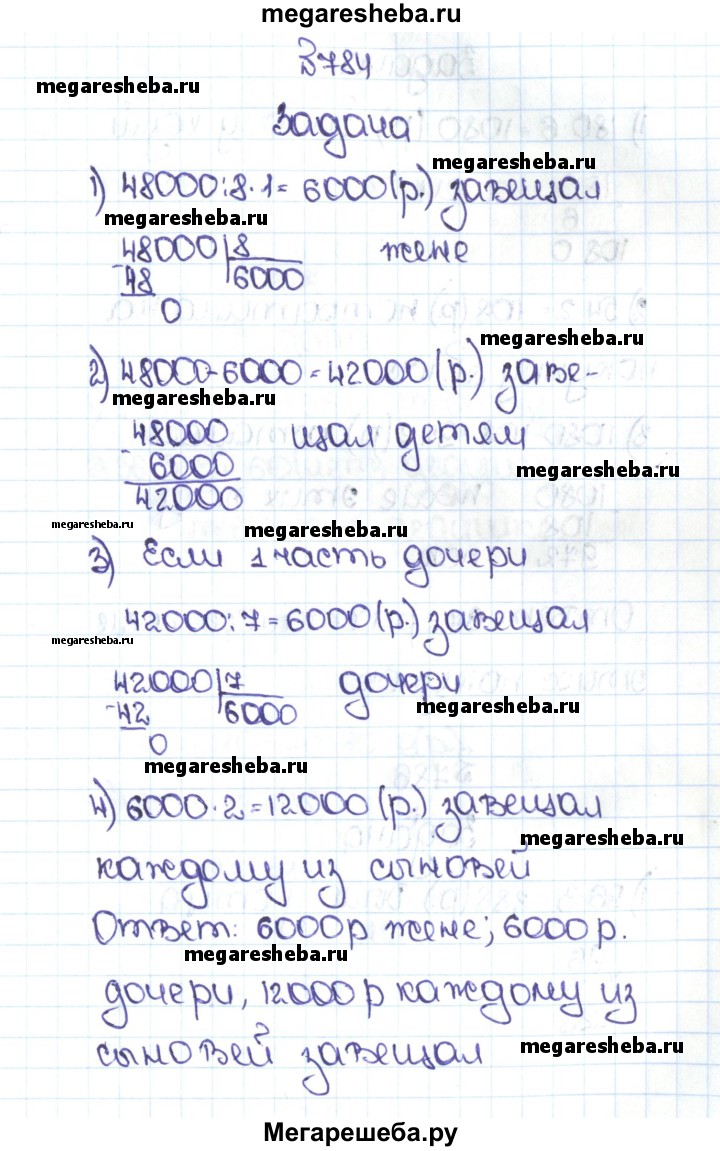 megaresheba.ru
№784
megaresheba.ru
Задача
megaresheba.ru
1) 48000:8·1= 6000(р.) завещал
megaresheba.ru
48000 8 жене
-48 6000
0
megaresheba.ru
2) 48000-6000=42000(р.) заве-
megaresheba.ru
48000 щал детям
- 6000
megaresheba.ru
42000
megaresheba.ru
megaresheba.ru
3) Если 1 часть дочери
42000:7=6000(р.) завещал
megaresheba.ru
42000 7 дочери
-42 6000
megaresheba.ru
0
megaresheba.ru
4) 6000·2=12000(р.) завещал
megaresheba.ru
каждому из сыновей
Ответ: 6000р жене; 6000 р.
megaresheba.ru
дочери, 12000 р каждому из
сыновей завещал
megaresheba.ru
Мегарешеба.ру